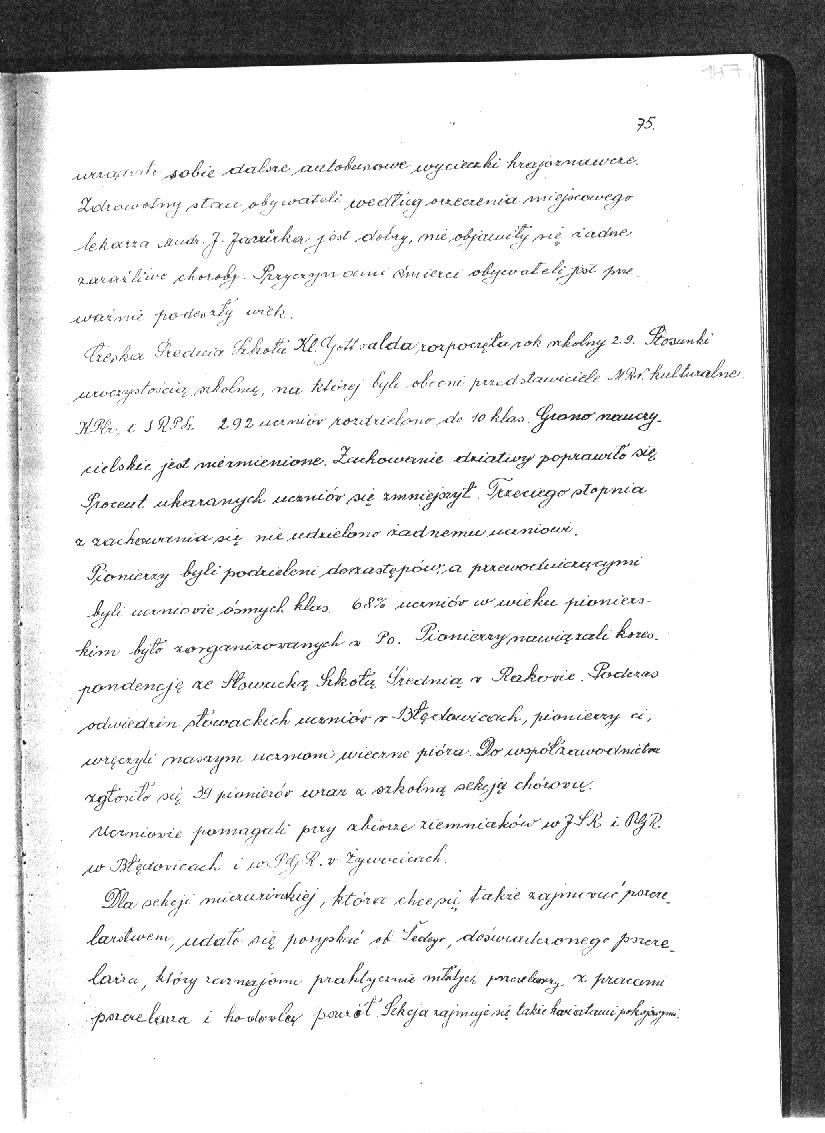 147
75.
urządziło sobie dalsze autobusowe wycieczki krajoznawcze.
Zdrowotny stan obywateli według orzeczenia miejscowego
lekarza Mudr. J. jest dobry, nie objawiły się żadne
zaraźliwe choroby. Przyczynami śmierci obywateli jest prze
ważnie podeszły wiek.
Czeska Średnia Szkoła Kl. Gottwalda rozpoczęła rok szkolny 2.9. Stosunki
uroczystością szkolną, na której byli obecni przedstawiciele kulturalne
i SRPŠ. 292 uczniów rozdzielono do 10 klas. Grono nauczy-
cielskie jest niezmienione. Zachowanie dziatwy poprawiło się
Procent ukaranych uczniów się zmniejszył. Trzeciego stopnia
z zachowania się nie udzielono żadnemu uczniowi.
Pionierzy byli podzieleni do zastępów, a przewodniczącymi
byli uczniowie ósmych klas. 68% uczniów w wieku pioniers-
kim było zorganizowanych v Po. Pionierzy nawiązali kores-
pondencję ze Słowacką Szkołą Średnią v Rakovie. Podczas
odwiedzin słowackich uczniów v Błędowicach, pionierzy ci,
wręczyli naszym uczniom wieczne pióra. Do współzawodnictwa
zgłosiło się 39 pionierów wraz z szkolną sekcją chórową.
Uczniowie pomagali przy zbiorze ziemniaków w JSR i PGR.
w Błędowicach i w PGR. v Żywocicach.
Dla sekcji miczurińskiej, która chce się także zajmować pszcze-
larstwem, udało się pozyskać ob. doświadczonego pszcze-
larza, który zaznajomi praktycznie młodych pszczelarzy z pracami
pszczelarza i hodowlą pszczół. Sekcja zajmuje się także kwiatami pokojowymi.